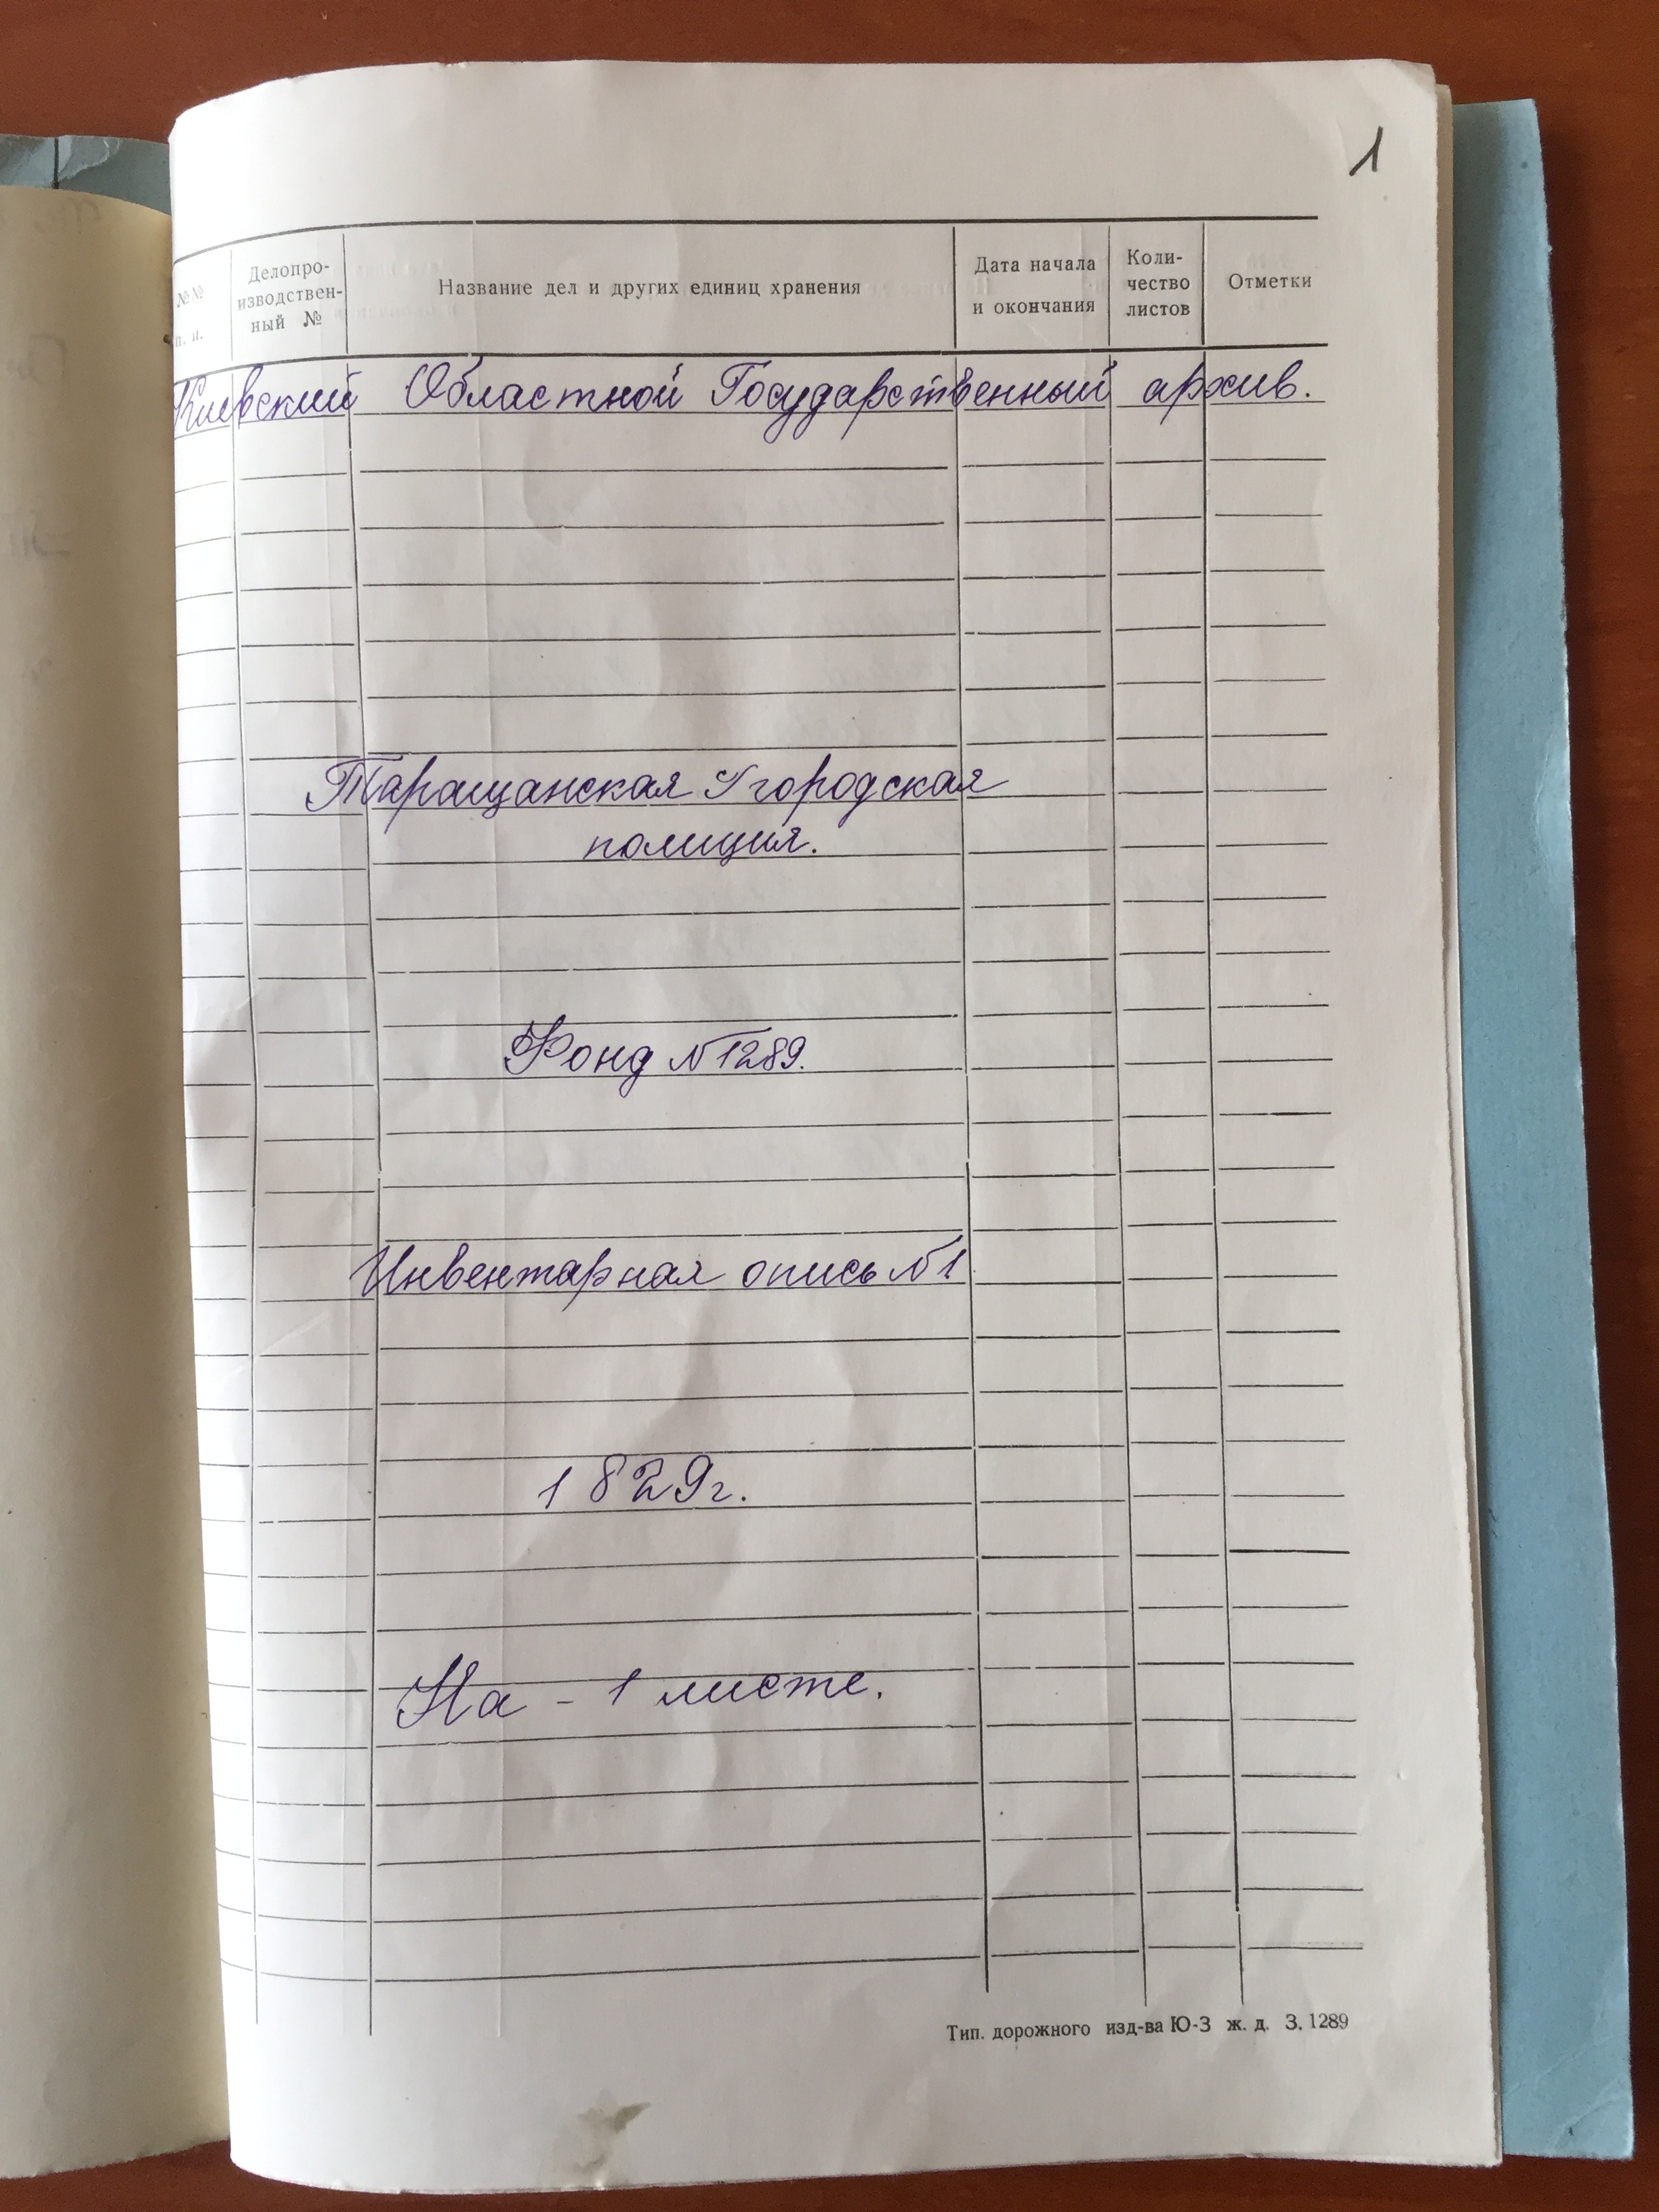 1
№№ п. п.
Делопро-
изводствен-
ный №
Название дел и других единиц хранения
Дата начала
и окончания
Коли-
чество
листов
Отметки
Киевский Областной Государственный архив.
Таращанская городская
полиция.
Фонд №1289.
Инвентарная опись №1
1829г.
На - 1 листе.
Тип. дорожного изд-ва Ю-З ж. д. З. 1289